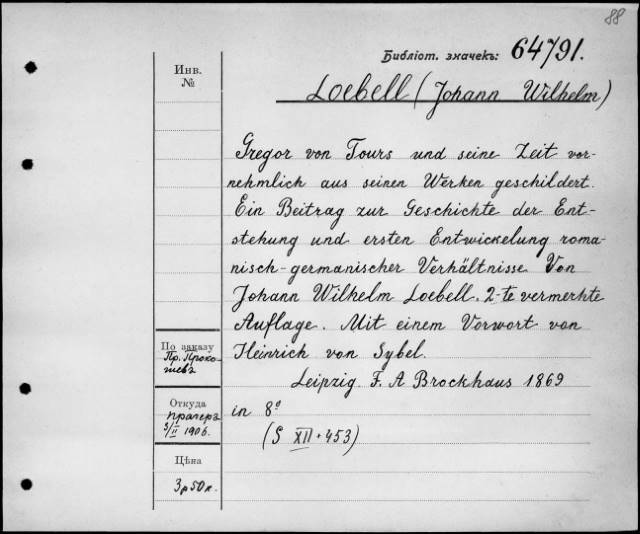 88
Библіот. значекъ: 64791.
Инв.
№
Loebell (Johann Wilhelm)
Gregor von Tours und seine Zeit vor-
nehmlich aus seinen Werken geschildert.
Ein Beitrag zur Geschichte der Ent-
stehung und ersten Entwickelung roma-
nisch-germanischer Verhältnisse Von
Johann Wilhelm Loebell. 2-te vermerhte
Auflage. Mit einem Vorwort von
Heinrich von Sybel.
Leipzig. F. A Brockhaus 1869
in 8º
(S XII + 453)
По заказу
Пр. Проко-
шевъ
Откуда
Прагеръ
3/II 1906.
Цѣна
3р50к.